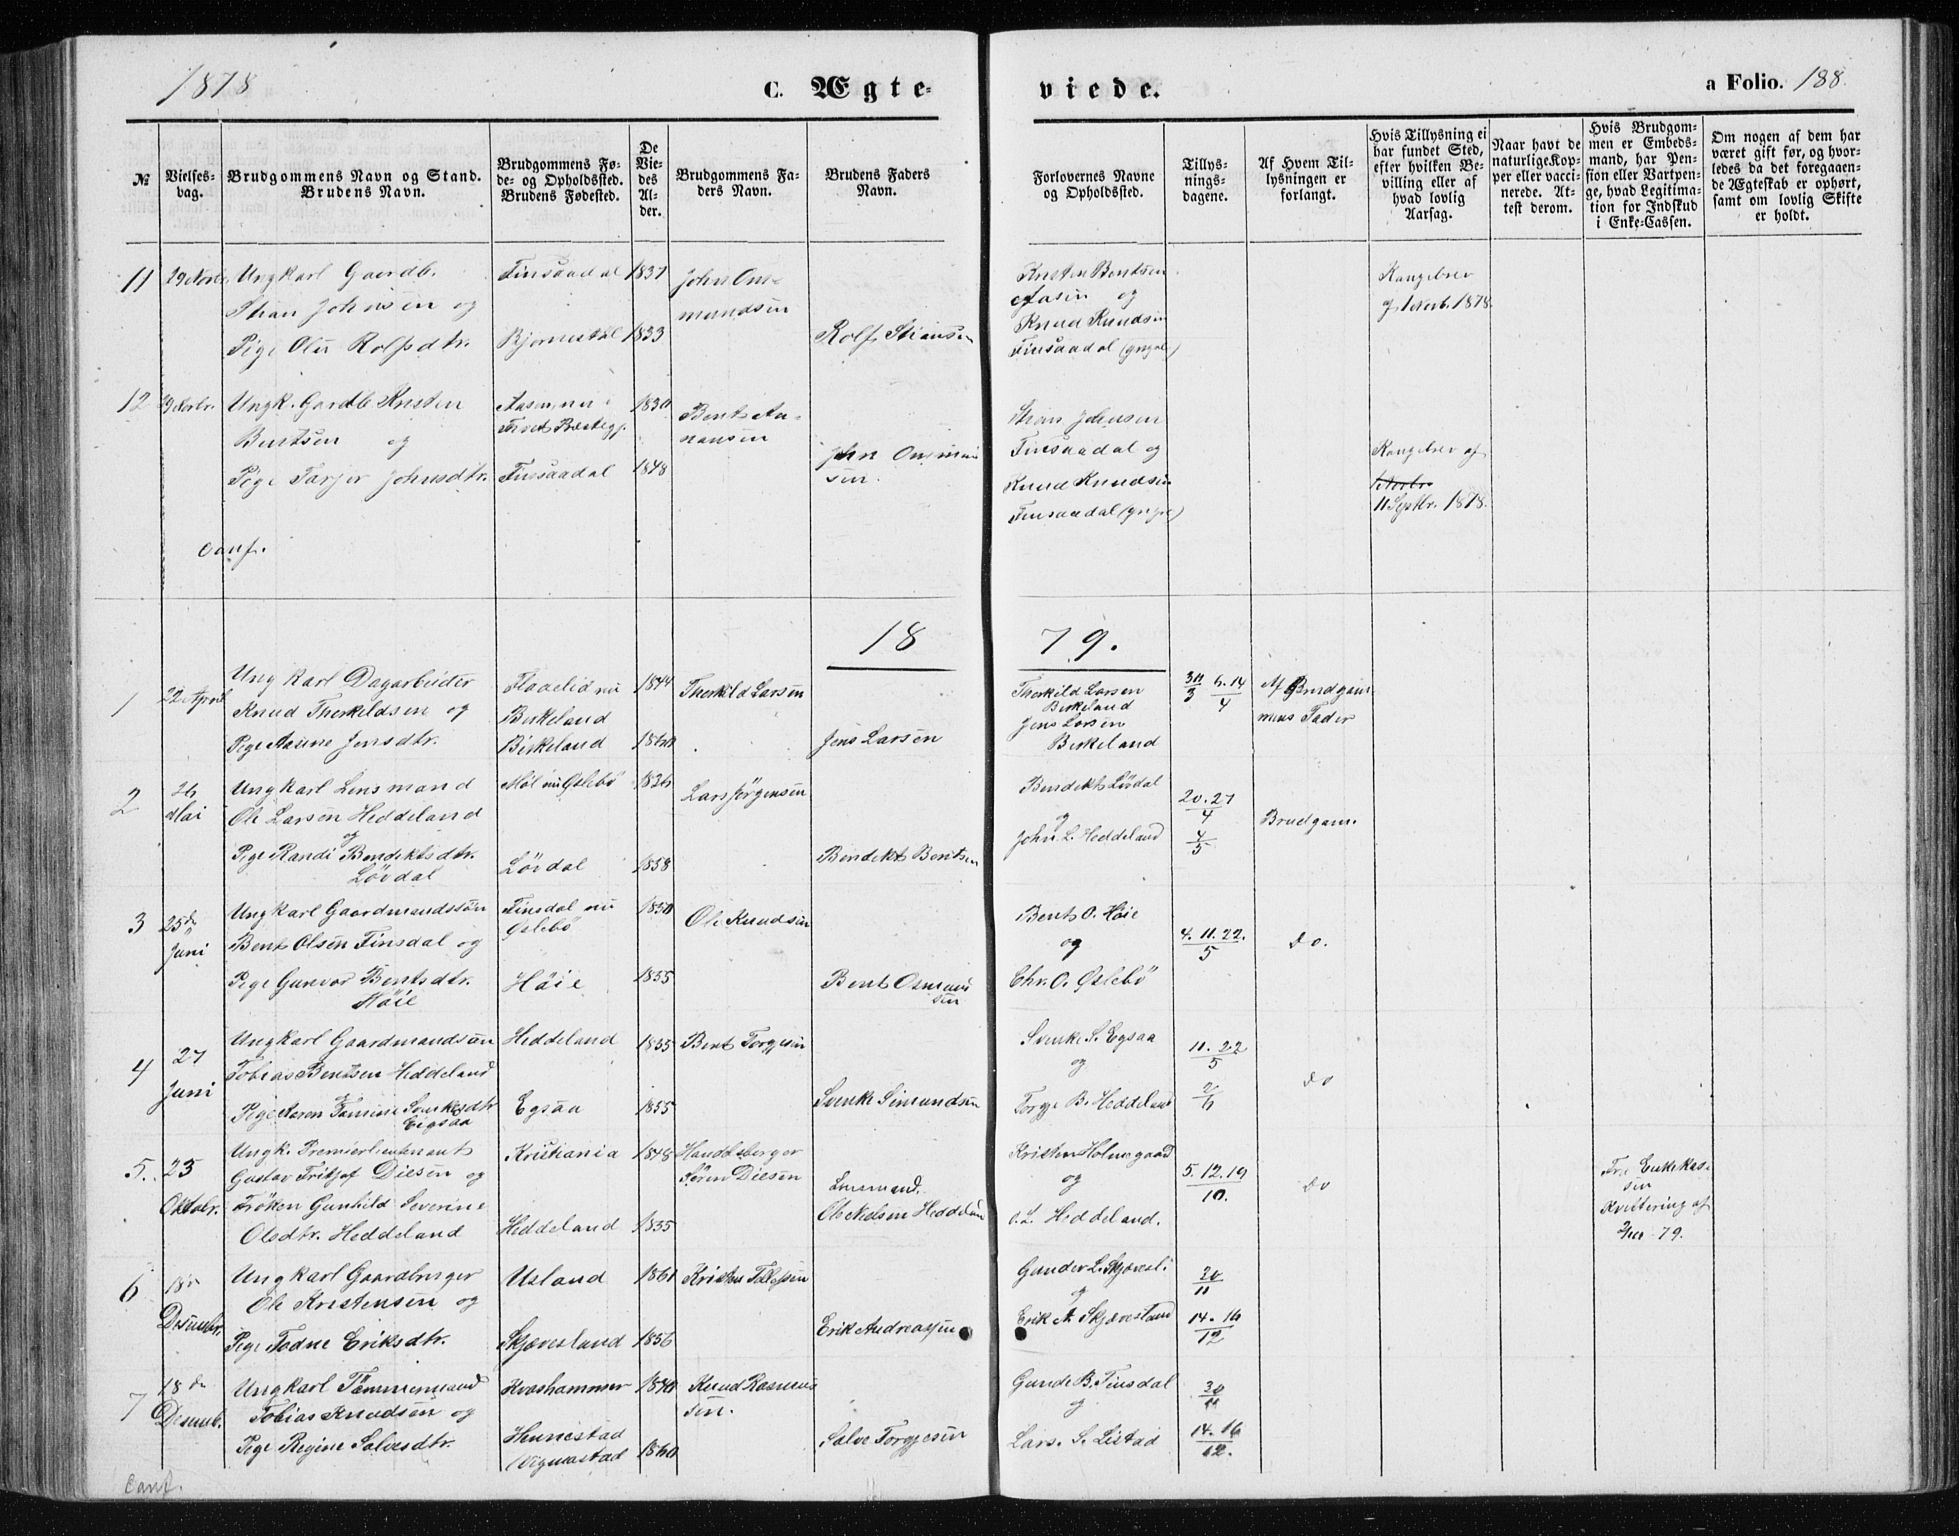 1878
C. Ægte-
viede.
a Folio. 188.
№
Vielses-
dag.
Brudgommens Navn og Stand.
Brudens Navn.
Brudgommens Fø-
de- og Opholdssted.
Brudens Fødested.
De
Vie-
des
Al-
der.
Brudgommens Fa-
ders Navn.
Brudens Faders
Navn.
Forlovernes Navne
og Opholdssted.
Tillys-
nings-
dagene.
Af Hvem Til-
lysningen er
forlangt.
Hvis Tillysning ei
har fundet Sted,
efter hvilken Be-
villing eller af
hvad lovlig
Aarsag.
Naar havt de
naturlige Kop-
per eller vacci-
nerede. At-
test derom.
Hvis Brudgom-
men er Embeds-
mand, har Pen-
sion eller Vartpen-
ge, hvad Legitima-
tion for Indskud
i Enke-Cassen.
Om nogen af dem har
været gift før, og hvor-
ledes da det foregaaen-
de Ægteskab er ophørt,
samt om lovlig Skifte
er holdt.
11
Ungkarl Gaardb.
Johnsen og
Pige Rolfsdtr.
Finsaadal
Bjornestøl
1837
1833
John Om-
mundsen
Rolf Stiansen
Kristen Bentsen
og
Knud Knudsen
Finsaadal (yngre)
Kongebrev
1878.
12
Ungk. Gardb. Kristen
Bentsen og
Pige Johnsdtr.
Finsaadal
1830
1848
Bent
John
Johnsen
Finsaadal og
Knud Knudsen
Finsaadal (yngre)
Kongebrev af
11 Septbr. 1878.
Conf.
18
79.
1
22 April
Ungkarl Dagarbeider
Knud Therkildsen og
Pige Aasine Jensdtr.
nu
Birkeland
Birkeland
1844
1860
Therkild Larsen
Jens Larsen
Therkild Larsen
Birkeland
Jens Larsen
Birkeland
30/3 6.14/4
Af Brudgom-
mens Fader
2
26
Mai
Ungkarl Lensmand
Ole Larsen Heddeland
og
Pige Randi Bendiktsdtr.
Lövdal
Möl nu Øslebö
Lövdal
1826
1858
Lars Jörgensen
Bendikt Bentsen
Bendikt Lövdal
og
John L. Heddeland
20.27/4
4/5
Brudgom.
3
25de
Juni
Ungkarl Gaardmandssön
Bent Olsen Finsdal og
Pige Gunvor Bentsdtr.
Höie
Finsdal nu
Øslebö
Höie
1850
1855
Ole Knudsen
Bent Osmund
sen
Bent O. Höie
og
Chr. O. Øslebö
4.11.22./5
Do.
4
27
Juni
Ungkarl Gaardmandssön
Tobias Bentsen Heddeland
og
Pige Aaren Tomine Svenkesdtr
Eigsaa
Heddeland
Egsaa
1855
1855
Bent Torgjesen
Svenke Simundsen
Svenke S. Egsaa
og
Torgje B. Heddeland
11.22/5
2/6
Do
5.
23
Oktobr.
Ungk. Premierlieutenant
Gustav Fritjof Diesen og
Fröken Gunhild Severine
Olsdtr. Heddeland
Kristiania
Heddeland
1848
1855
Handelsborger
Sören Diesen
Lensmand
Ole Nilsen Heddeland
Kristen Holmegaard
og
O. L. Heddeland.
5.12.19/10.
Do
Enkekas-
sen
Kvittering af
79.
6
18de
Desembr.
Ungkarl Gaardbruger
Ole Kristensen og
Pige Todne Eriksdtr.
Usland
Skjævesland
1861
1856
Kristen Tellefsen
Erik Andreassen
Gunder L. Skjævesl.
og
Erik A. Skjævesland
30/11
14.16/12
7
18de
Desemb.
Ungkarl Tömmermand
Tobias Knudsen og
Pige Regine Salvesdtr.
Kvashammer
Hunnestad
1840
1860
Knud Rasmus
sen.
Salve Torgjesen
Gunde B. Finsdal
og
Lars. S. Listad
30/11
14.16/12.
Conf.